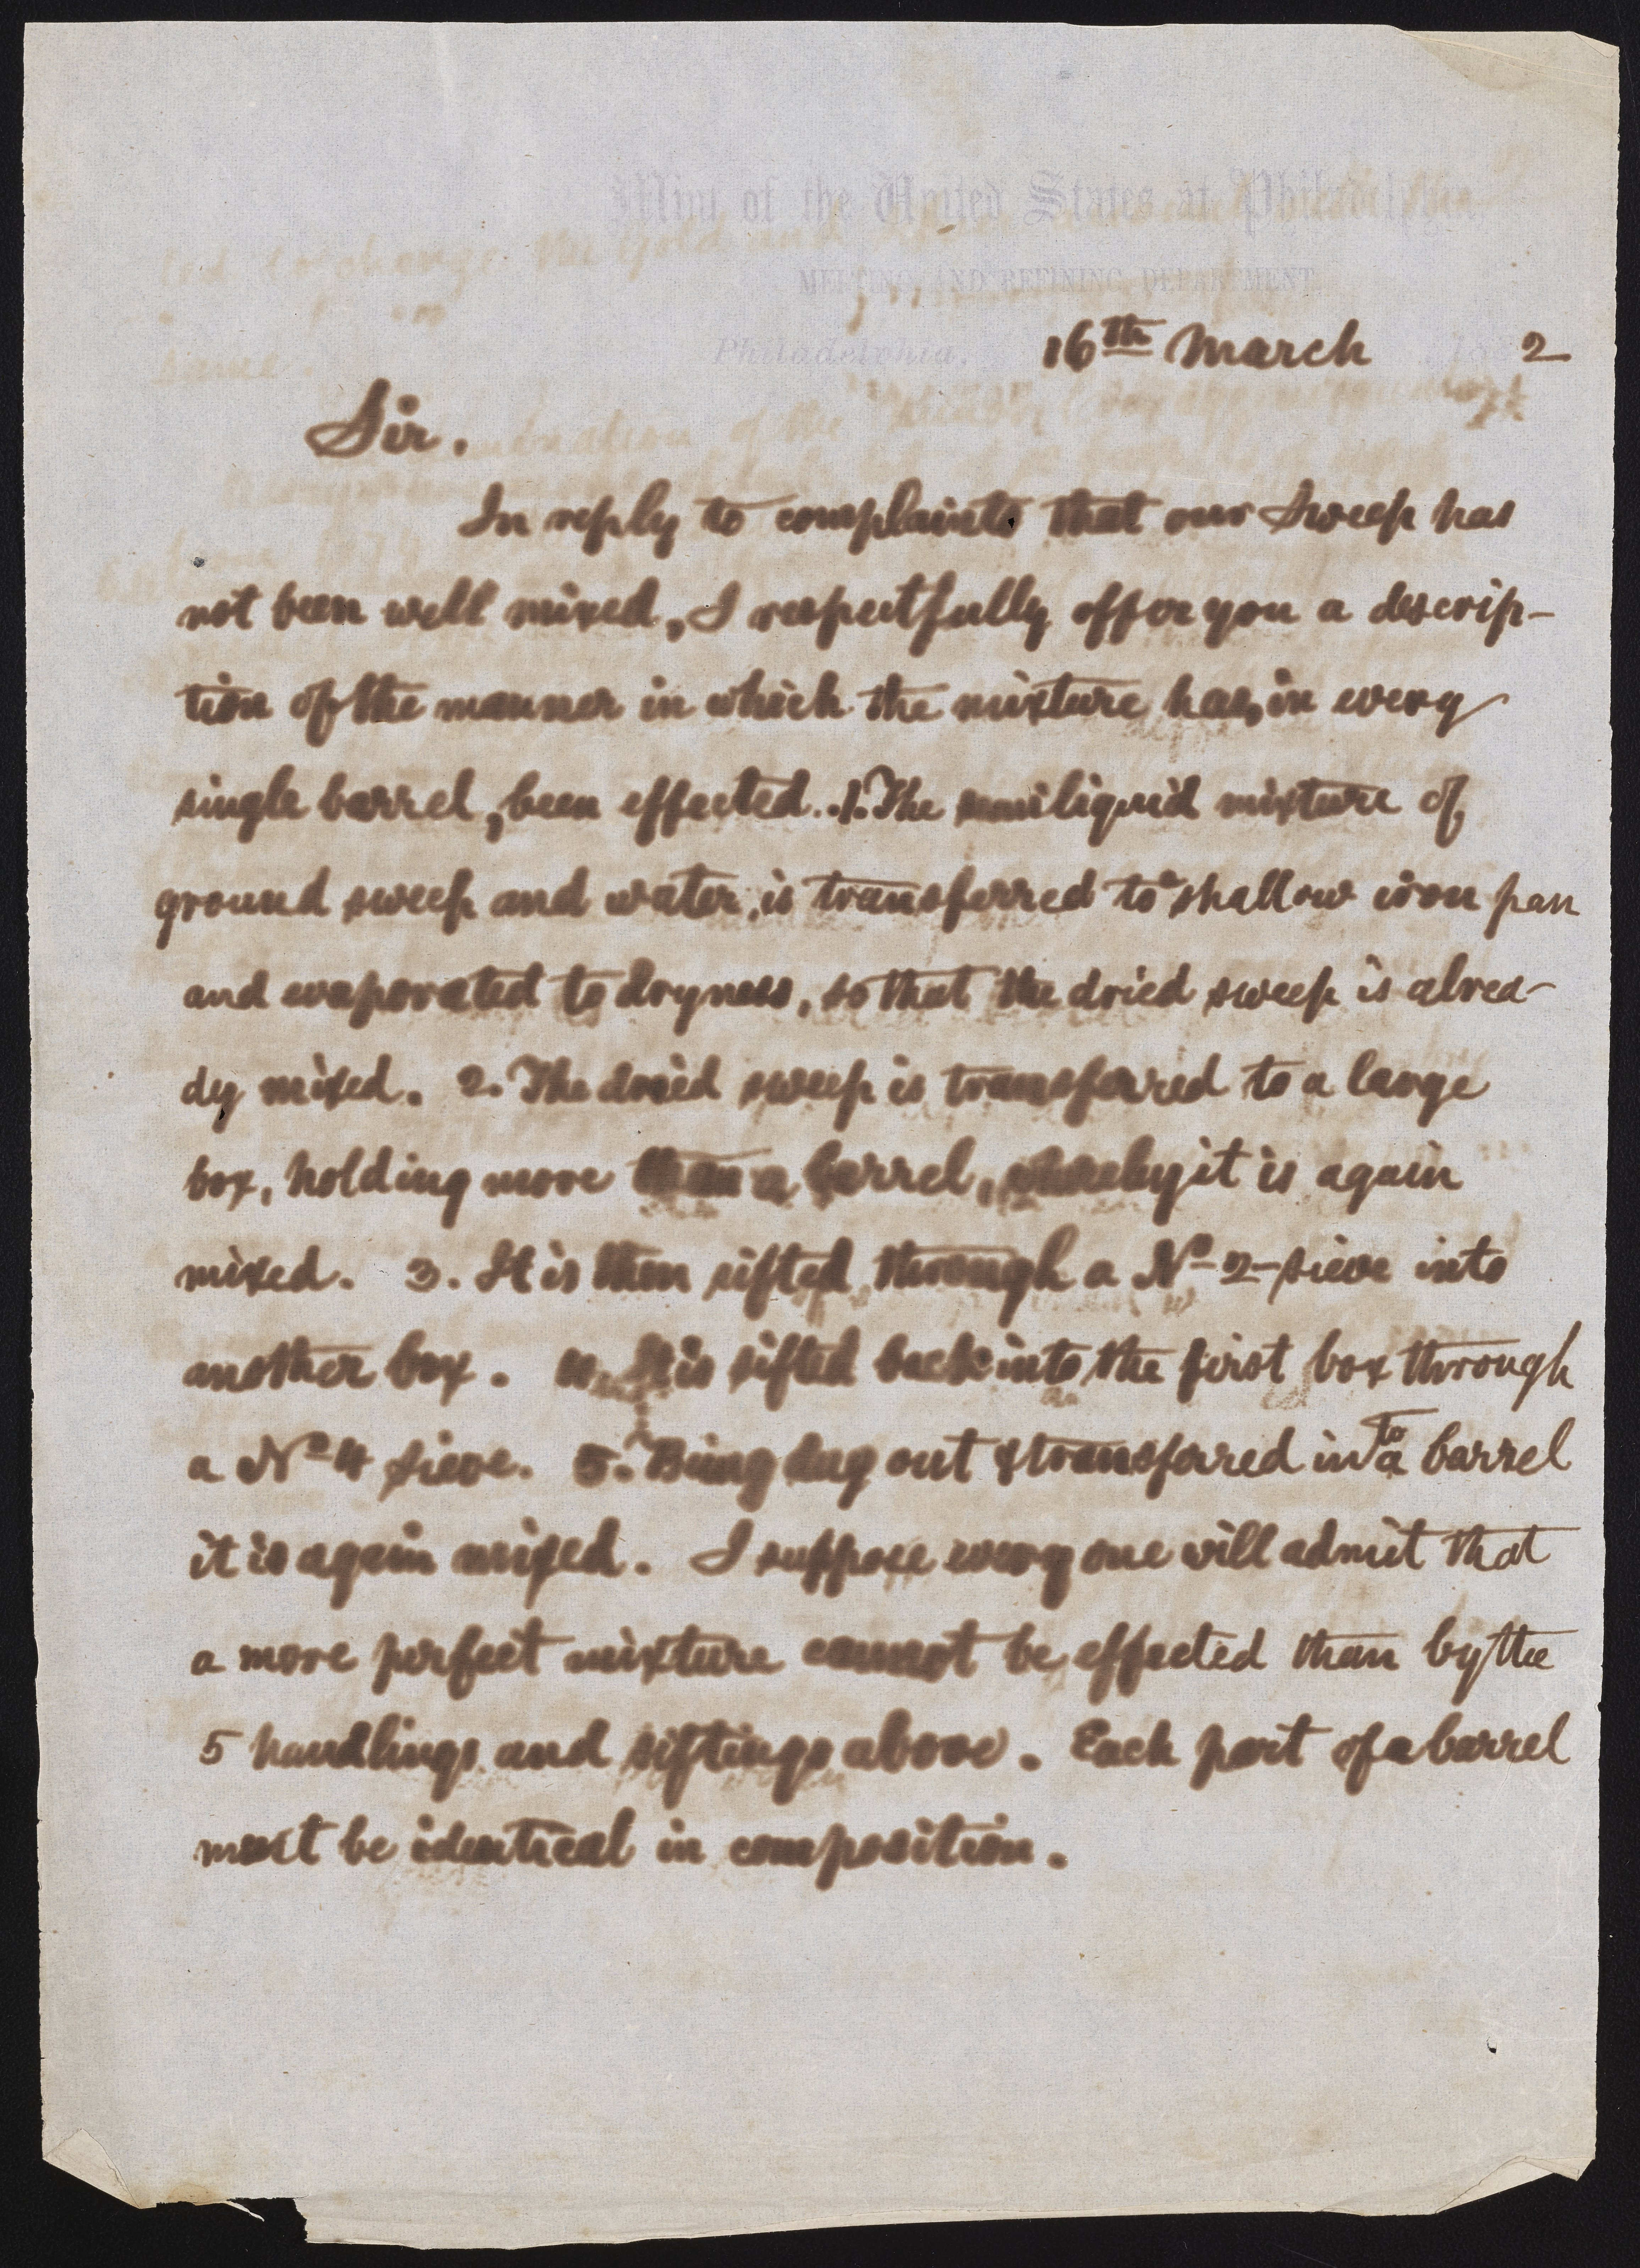 Mint of the United States at Philadelphia.
MELTING AND REFINING DEPARTMENT
Philadelphia, 16th March 187 2
Sir.
In reply to complaints that our Sweep has
not been well mixed, I respectfully offer you a descrip-
tion of the manner in which the mixture has, in every
single barrel, been effected. 1. The semiliquid mixture of
ground sweep and water, is transferred to a shallow iron pan
and evaporated to dryness, so that the dried sweep is alrea-
dy mixed. 2. The dried sweep is transferred to a large
box, holding more than a barrel, whereby it is again
mixed. 3. It is then sifted through a No 2 sieve into
another box. 4. It is sifted back into the first box through
a No 4 sieve. 5. Being dug out & transferred into a barrel
it is again mixed. I suppose every one will admit that
a more perfect mixture cannot be effected than by the
5 handlings and siftings above. Each part of a barrel
must be identical in composition.